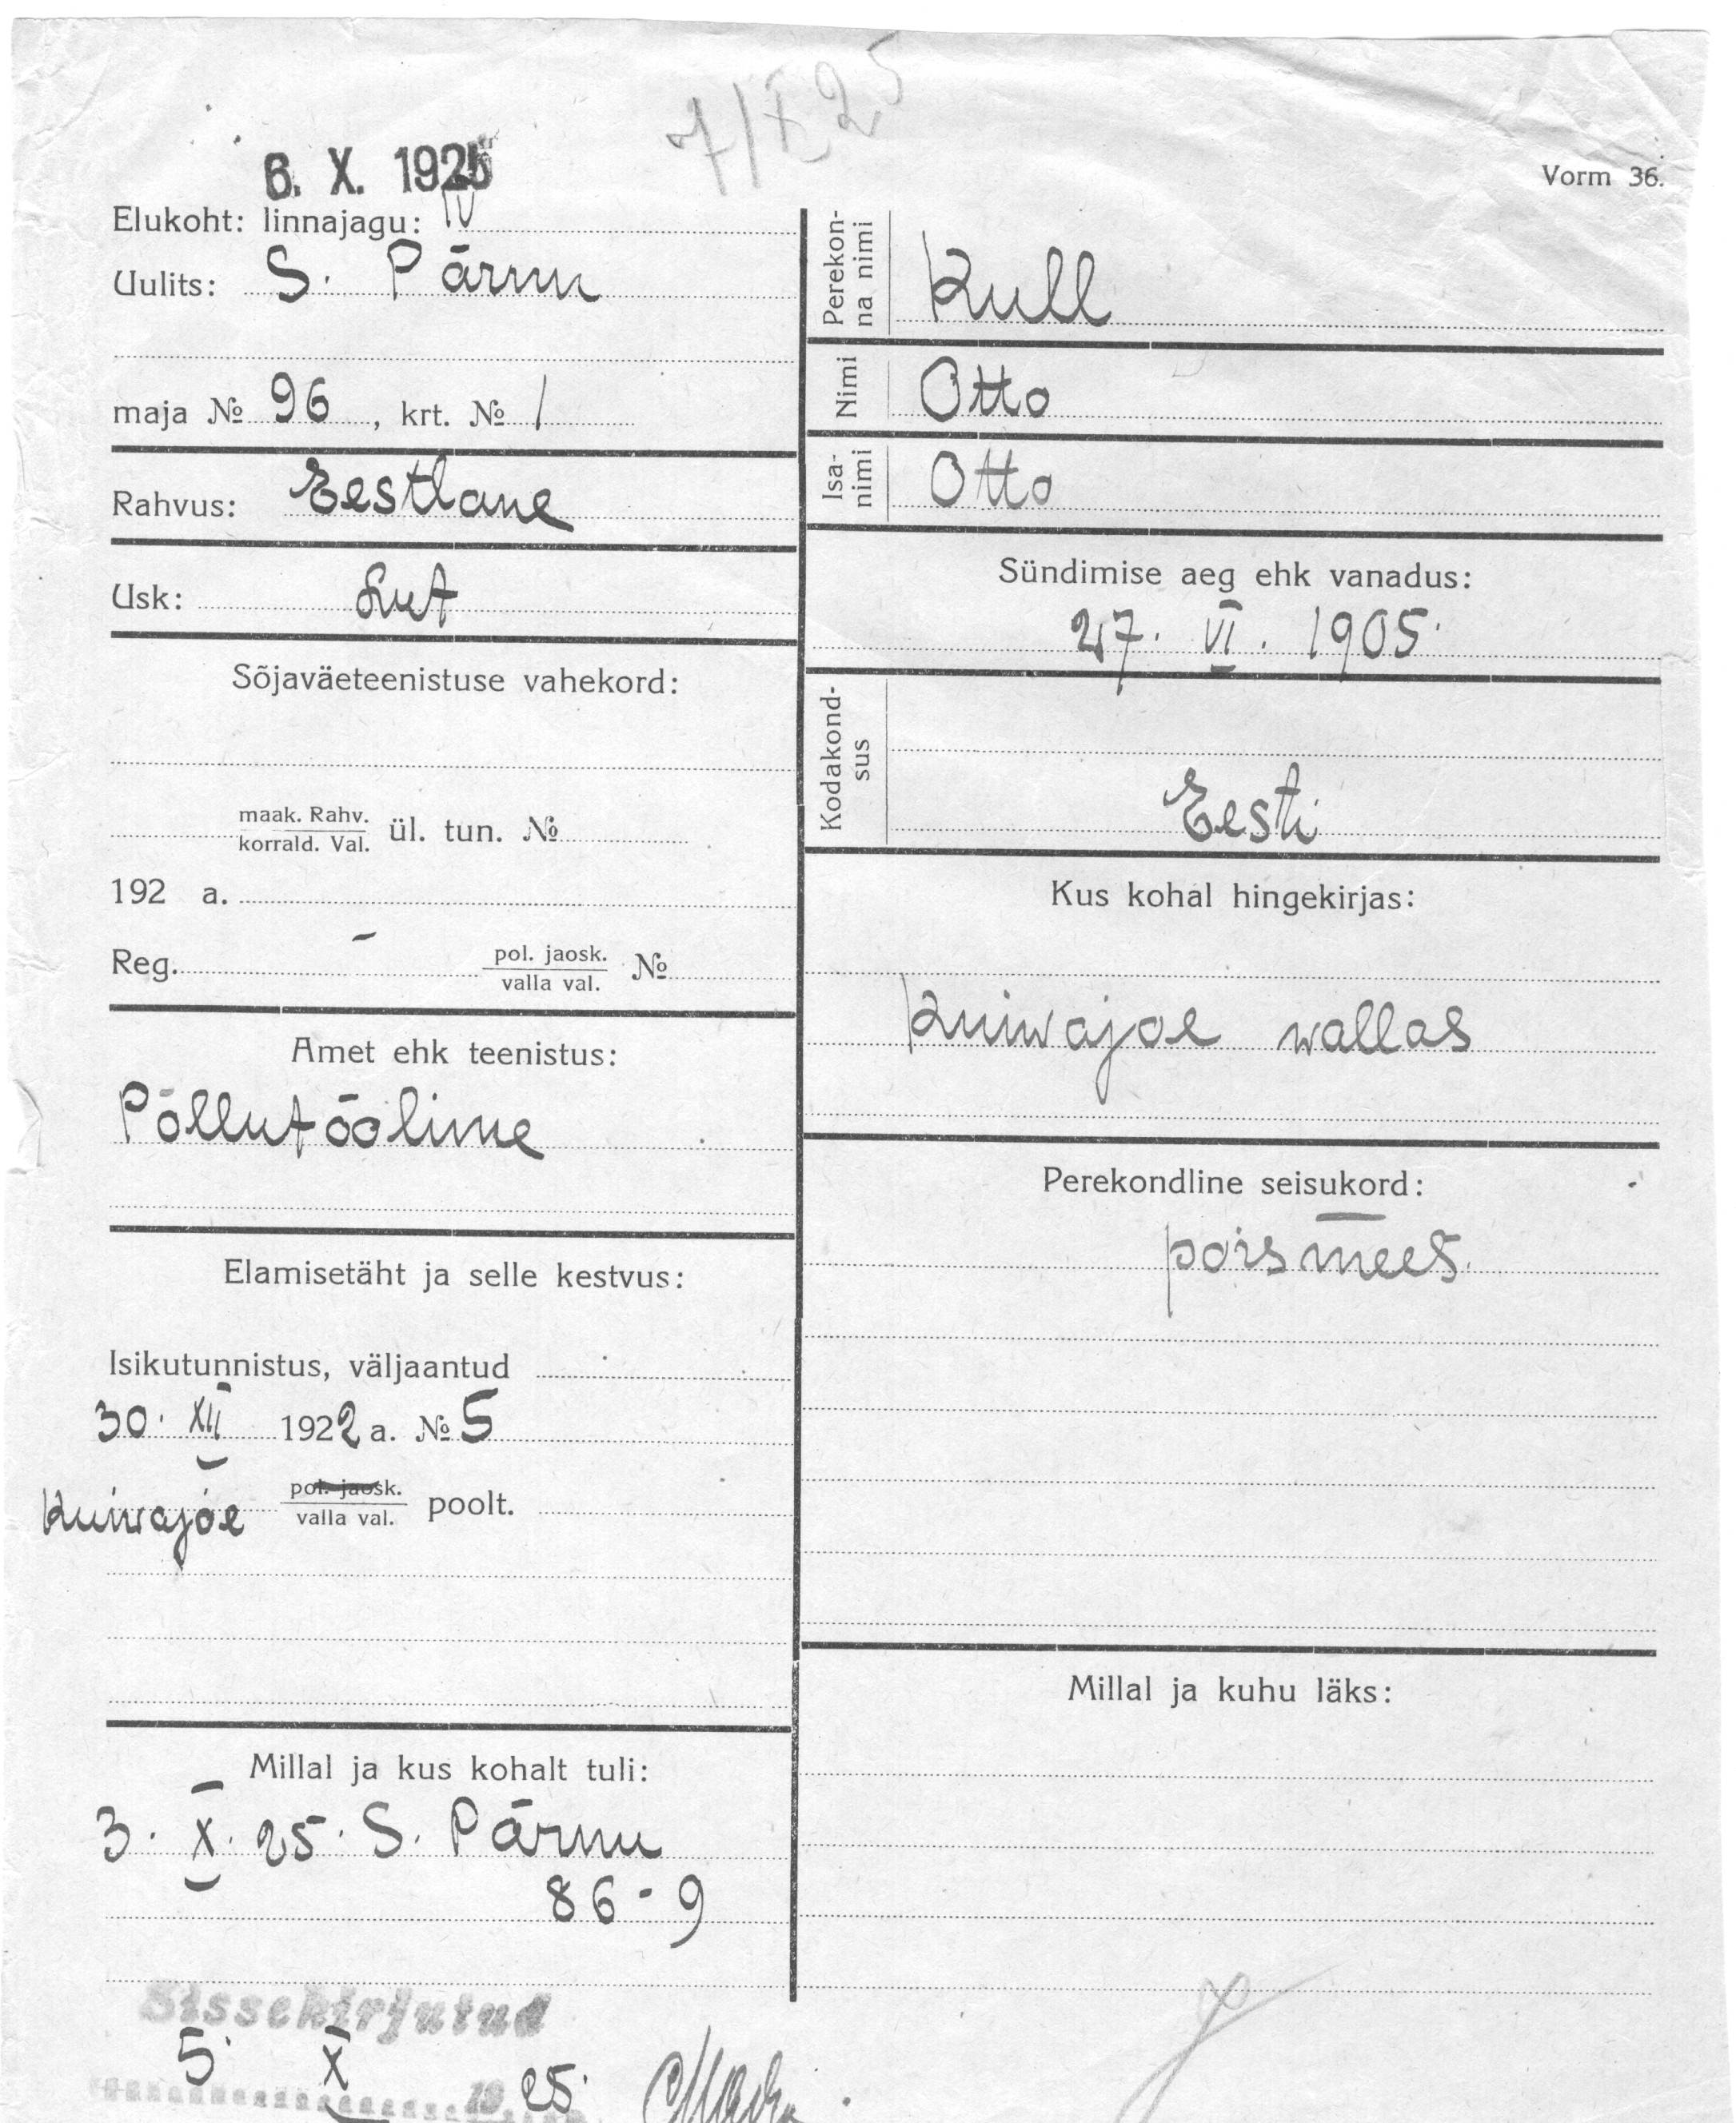 7/X 25
6. X. 1925
Vorm 36.
Elukoht: linnajagu: IV
Uulits: S. Pärnu
maja № 96, krt. № 1
Rahvus: Eestlane
Usk: Lut
Sõjaväeteenistuse vahekord:
maak. Rahv.
korrald. Val. ül. tun. №
192 a.
Reg. - pol. jaosk.
valla val. №
Amet ehk teenistus:
Põllutööline
Elamisetäht ja selle kestvus:
Isikutunnistus, väljaantud
30. XII 1922 a. № 5
Kuiwajõe pol. jaosk.
valla val. poolt.
Millal ja kus kohalt tuli:
3. X. 25. S. Pärnu
86-9
Sissekirjutud
5. X 1925.
Perekon-
na nimi Kull
Nimi Otto
Isa-
nimi Otto
Sündimise aeg ehk vanadus:
27. VI. 1905.
Kodakond-
sus Eesti
Kus kohal hingekirjas:
Kuiwajoe wallas
Perekondline seisukord:
poismees.
Millal ja kuhu läks: